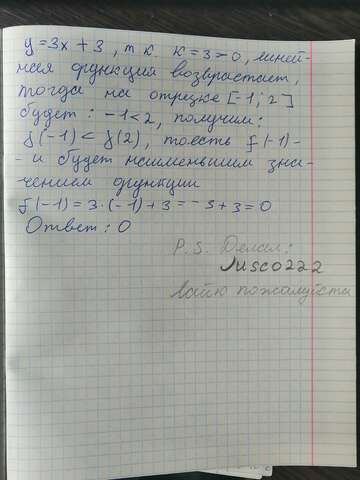 y = 3x + 3, т.к. k = 3 > 0, линей-
ная функция возврастает,
тогда на отрезке [-1; 2]
будет: -1 < 2, получим:
f(-1) < f(2), тоесть f(-1) -
- и будет наименьшим зна-
чением функции
f(-1) = 3·(-1) + 3 = -3 + 3 = 0
Ответ: 0
P.S. Делал:
Jusco222
пожалуйста